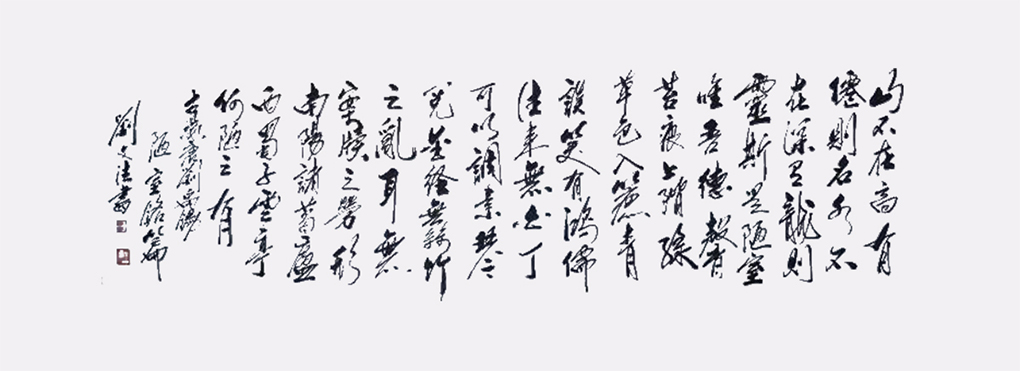 山不在高有
僊則名水不
在深有龍則
靈斯是陋室
唯吾德馨
苔痕上階綠
草色入簾青
談笑有鴻儒
往來無白丁
可以調素琴
閱金經無絲竹
之亂耳無
案牘之勞形
南陽諸葛廬
西蜀子雲亭
何陋之有
唐劉禹錫
陋室銘篇
劉文法書